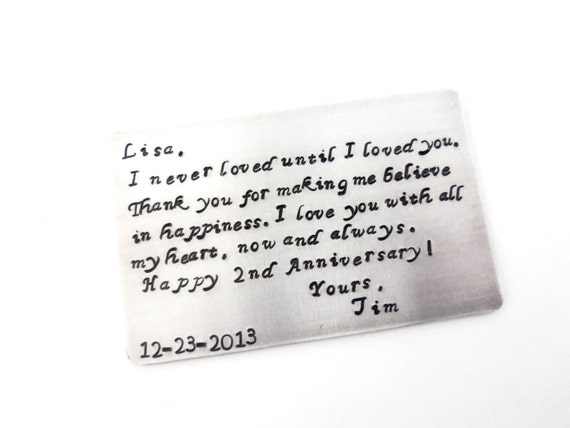 Lisa.
I never loved until I loved you.
Thank you for making me believe
in happiness. I love you with all
my heart. now and always.
Happy 2nd Anniversary!
Yours.
Jim
12-23-2013